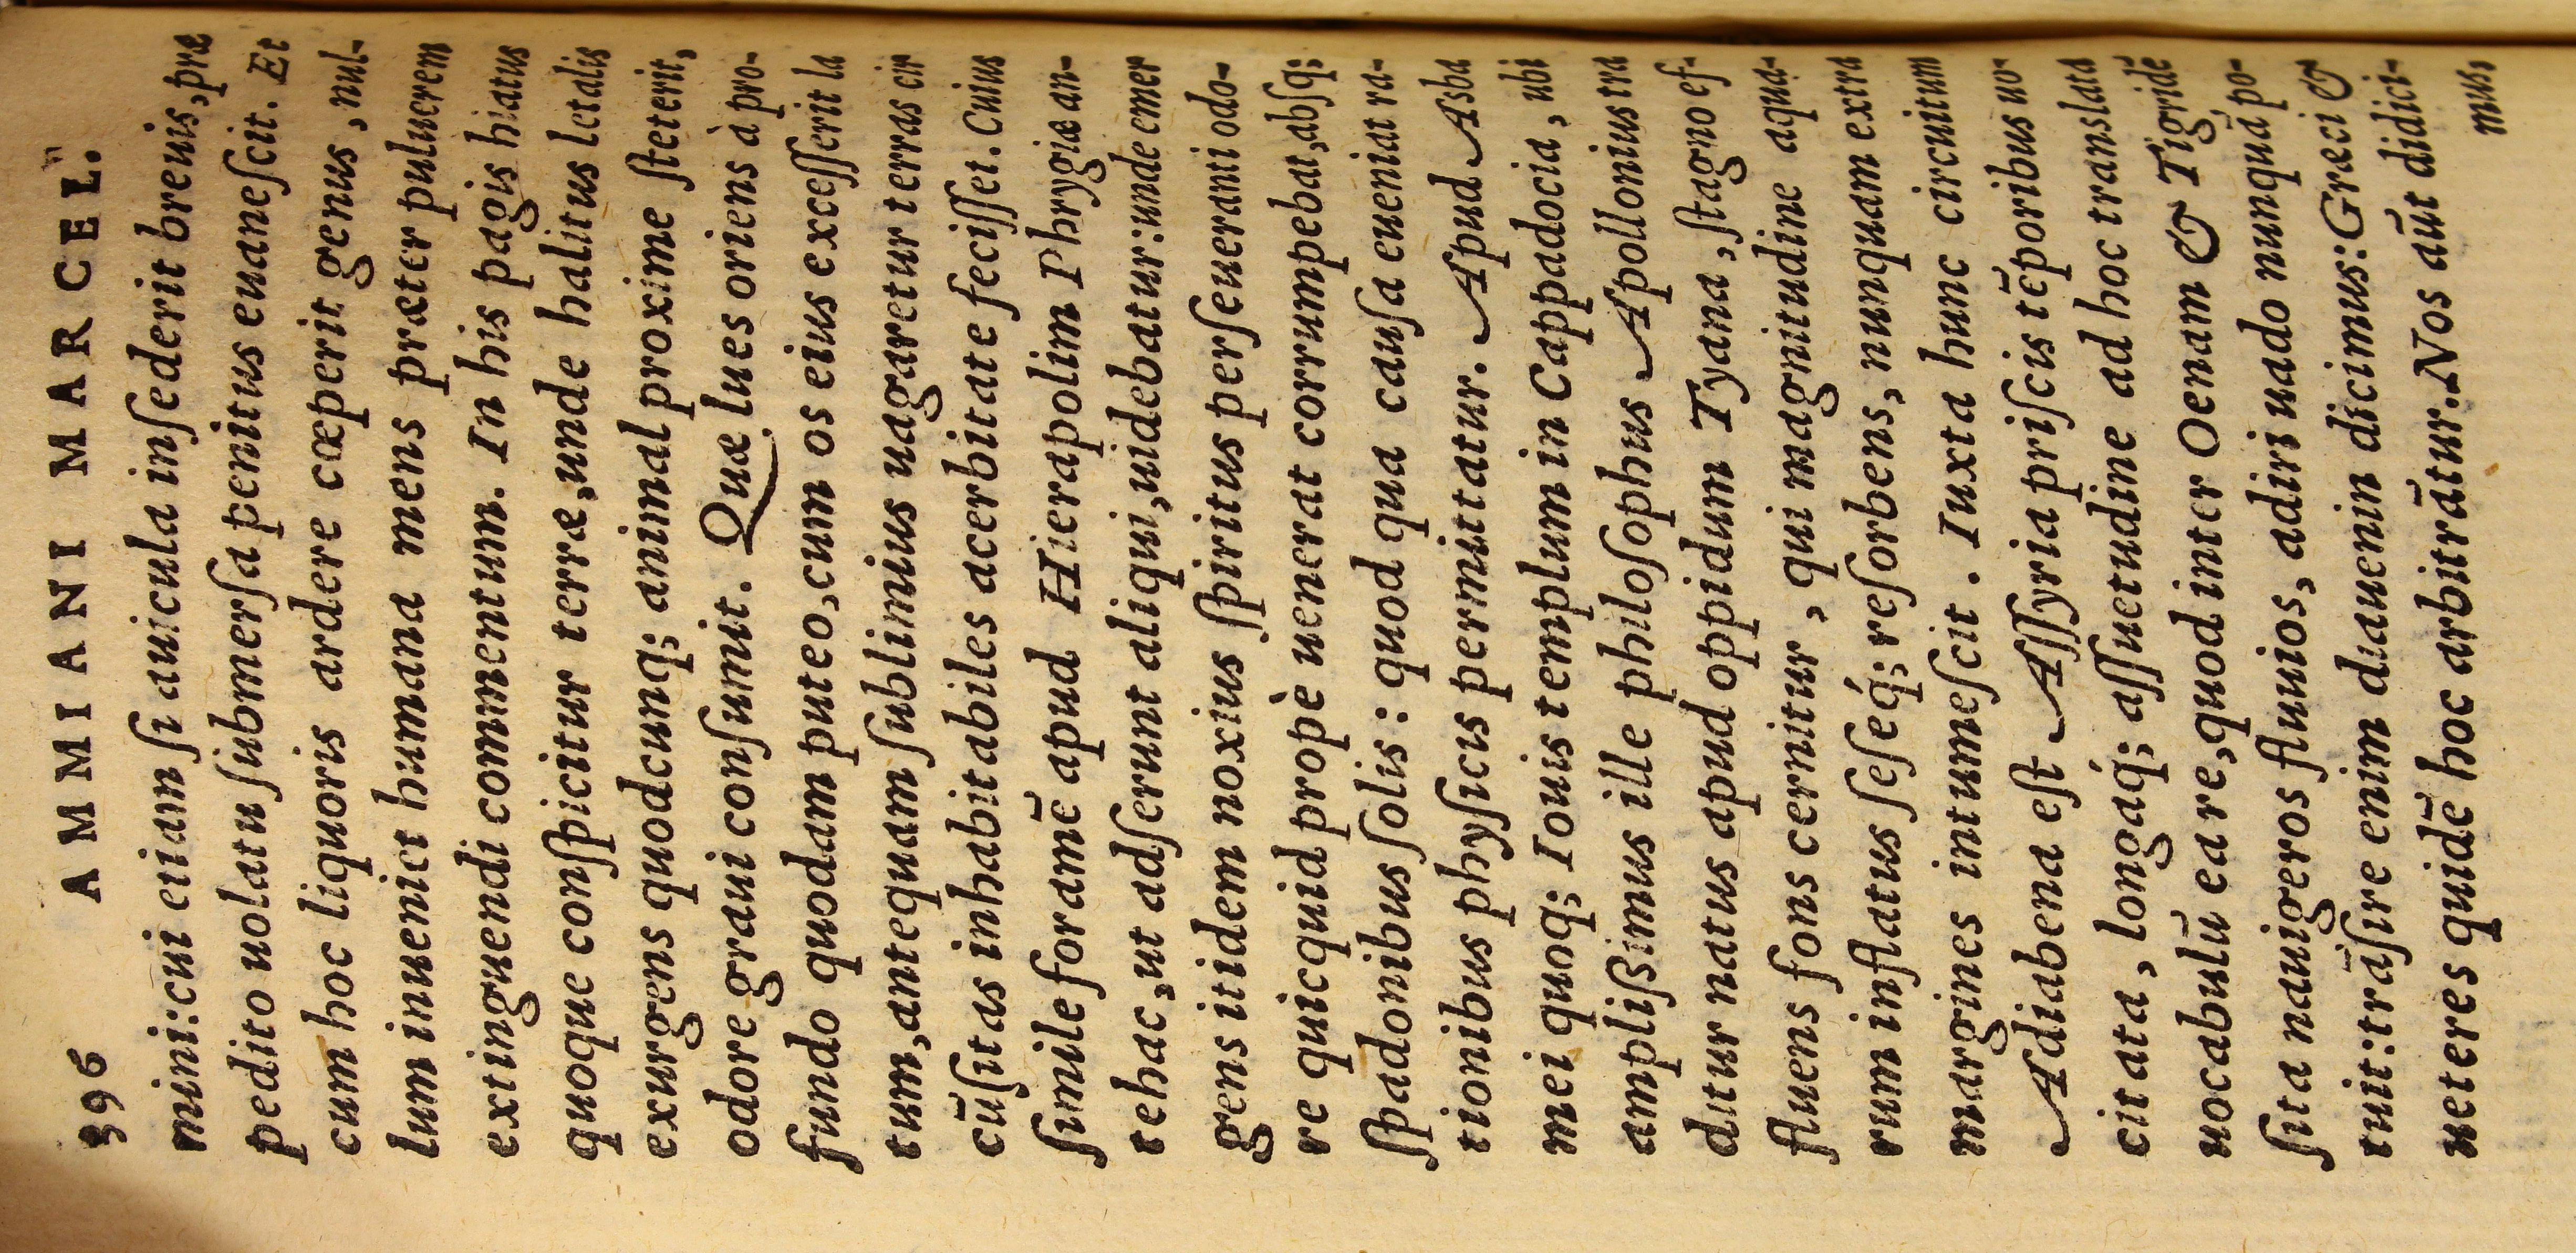 396 AMMIANI MARCEL.
mini:cui etiam ſi auicula inſederit breuis, præ
pedito uolatu ſubmerſa penitus euaneſcit. Et
cum hoc liquoris ardere cœperit genus, nul-
lum inueniet humana mens præter puluerem
extinguendi commentum. In his pagis hiatus
quoque conſpicitur terræ,unde halitus letalis
exurgens quodcunq; animal proxime ſteterit,
odore graui conſumit. Quæ lues oriens à pro-
fundo quodam puteo,cum os eius exceſſerit la
tum,antequam ſublimius uagaretur terras cir
cũſitas inhabitabiles acerbitate feciſſet. Cuius
ſimile foramẽ apud Hierapolim Phrygiæ an-
tehac,ut adſerunt aliqui,uidebatur:unde emer
gens itidem noxius ſpiritus perſeueranti odo-
re quicquid propè uenerat corrumpebat,abſq;
ſpadonibus ſolis: quod qua cauſa eueniat ra-
tionibus phyſicis permittatur. Apud Asba
mei quoq; Iouis templum in Cappadocia, ubi
ampliſsimus ille philoſophus Apollonius tra
ditur natus apud oppidum Tyana, ſtagno ef-
fluens fons cernitur, qui magnitudine aqua-
rum inflatus ſeſeq́; reſorbens, nunquam extra
margines intumeſcit. Iuxta hunc circuitum
Adiabena eſt Aſſyria priſcis tẽporibus uo-
citata, longaq́; aſſuetudine ad hoc translata
uocabulũ ea re,quod inter Oenam & Tigridẽ
ſita nauigeros fluuios, adiri uado nunquã po-
tuit:trãſire enim diauenin dicimus:Græci &
ueteres quidẽ hoc arbitrãtur. Nos aũt didici-
mus,